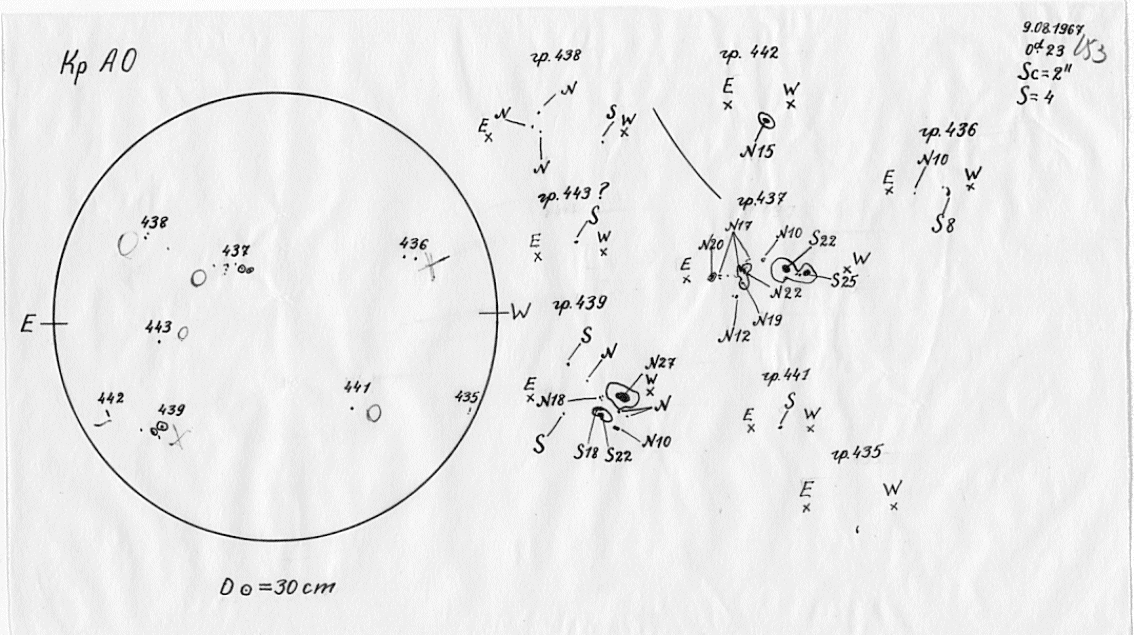 Кр АО
9.08.1967
0ᵈ.23
153
Sc = 2"
S = 4
438
437
436
E
W
443
442
439
441
435
D ⊙ = 30 cm
гр. 438
N
N
E
N
S W
гр. 442
E W
N15
гр. 436
N10
E W
S8
гр. 443 ?
S
E W
гр. 437
N17
N20 N10 S22
E W
S25
N22
N19
N12
гр. 439
S
N
N27
E W
N18 N
S S18 S22 N10
гр. 441
S
E W
гр. 435
E W